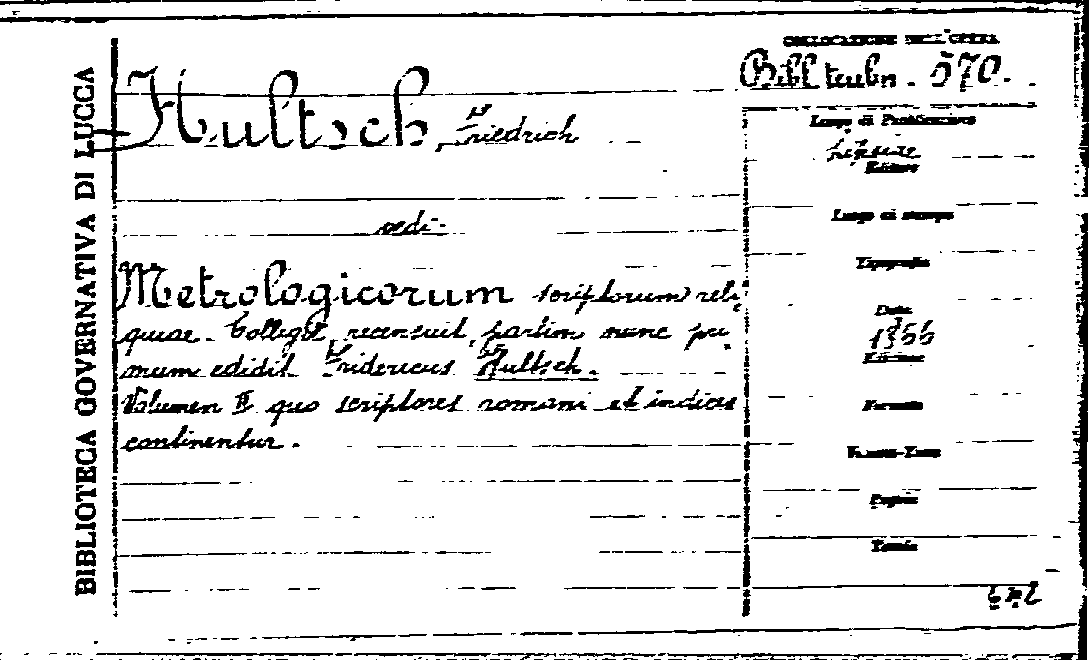 BIBLIOTECA GOVERNATIVA DI LUCCA
COLLOCAZIONE DELL'OPERA
Bibl. teubn. 570.
Hultsch, Friedrich
Luogo di Pubblicazione
Lipsiae
Editore
vedi:
Luogo di stampa
Tipografia
Metrologicorum scriptorum reli-
quiae. Collegit, recensuit, partim nunc pri-
mum edidit Fridericus Hultsch.
Volumen II quo scriptores romani et indices
continentur.
Data
1866
Edizione
Formato
Pagine
Tomi